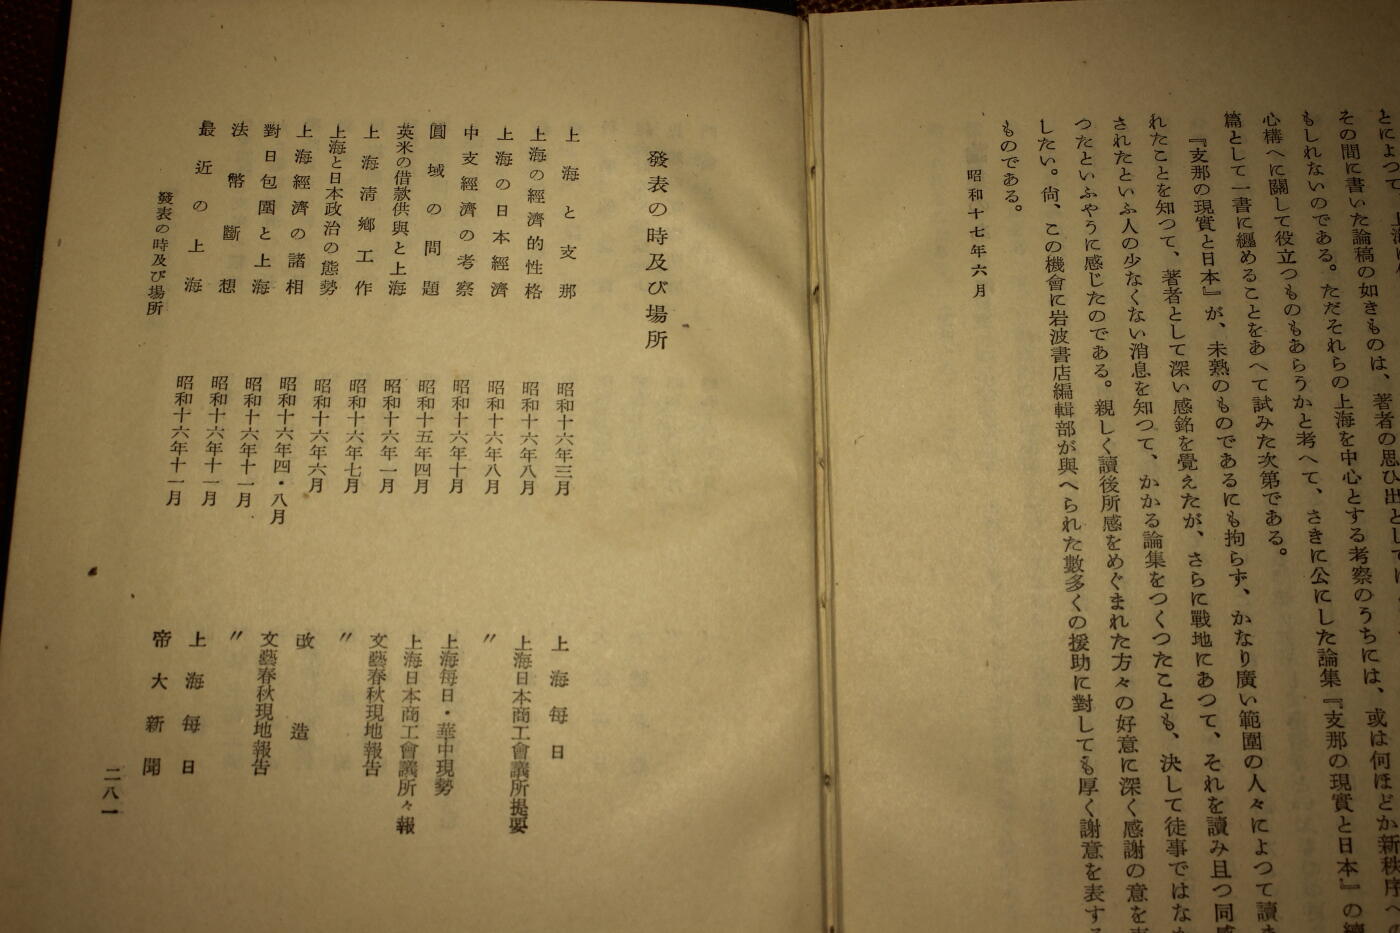 とによつて、上海
その間に書いた論稿の如きものは、著者の思ひ出としては
もしれないのである。ただそれらの上海を中心とする考察のうちには、或は何ほどか新秩序へ
心構へに關して役立つものもあらうかと考へて、さきに公にした論集『支那の現實と日本』の續
篇として一書に纒めることをあへて試みた次第である。
『支那の現實と日本』が、未熟のものであるにも拘らず、かなり廣い範圍の人々によつて讀ま
れたことを知つて、著者として深い感銘を覺えたが、さらに戰地にあつて、それを讀み且つ同感
されたといふ人の少なくない消息を知つて、かかる論集をつくつたことも、決して徒事ではな
つたといふやうに感じたのである。親しく讀後所感をめぐまれた方々の好意に深く感謝の意を
したい。尙、この機會に岩波書店編輯部が與へられた數多くの援助に對しても厚く謝意を表す
ものである。
昭和十七年六月
發表の時及び場所
上海と支那 昭和十六年三月 上海每日
上海の經濟的性格 昭和十六年八月 上海日本商工會議所提要
上海の日本經濟 昭和十六年八月 〃
中支經濟の考察 昭和十六年十月 上海每日・華中現勢
圓域の問題 昭和十五年四月 上海日本商工會議所々報
英米の借款供與と上海 昭和十六年一月 文藝春秋現地報告
上海淸鄕工作 昭和十六年七月 〃
上海と日本政治の態勢 昭和十六年六月 改造
上海經濟の諸相 昭和十六年四・八月 文藝春秋現地報告
對日包圍と上海 昭和十六年十一月 〃
法幣斷想 昭和十六年十一月 上海每日
最近の上海 昭和十六年十一月 帝大新聞
發表の時及び場所
二八一